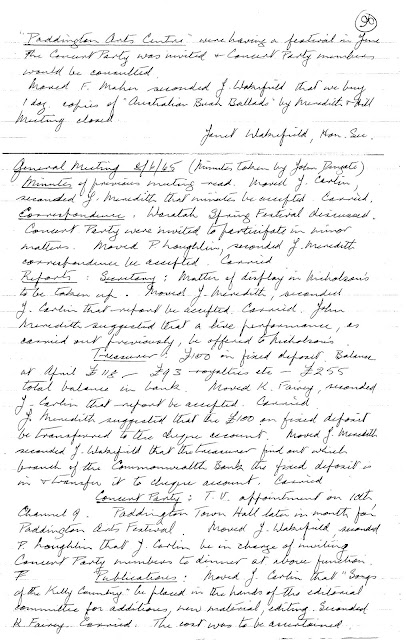 90
"Paddington Arts Centre" were having a festival in June
The Concert Party was invited & Concert Party members
would be consulted.
Moved F. Maher seconded J. Wakefield that we buy
1 doz. copies of "Australian Bush Ballads" by Meredith & Hill
Meeting closed.
Janet Wakefield, Hon. Sec.
General Meeting 8/6/65 (Minutes taken by John Dengate)
Minutes of previous meeting read. Moved J. Carlin,
seconded J. Meredith that minutes be accepted. Carried.
Correspondence. Waratah Spring Festival discussed.
Concert Party were invited to participate in minor
matters. Moved P. Loughlin, seconded J. Meredith
correspondence be accepted. Carried
Reports : Secretary : Matter of display in Nicholson's
to be taken up. Moved J. Meredith, seconded
J. Carlin that report be accepted. Carried. John
Meredith suggested that a live performance, as
carried out previously, be offered to Nicholson's
Treasurer : £100 on fixed deposit. Balance
at April £112 – £43 royalties etc – £255
total balance in bank. Moved K. Fairey, seconded
J. Carlin that report be accepted. Carried
J. Meredith suggested that the £100 on fixed deposit
be transferred to the cheque account. Moved J. Meredith
seconded J. Wakefield that the treasurer find out which
branch of the Commonwealth Bank the fixed deposit is
in & transfer it to cheque account. Carried
Concert Party : T.V. appointment on 10th
Channel 9. Paddington Town Hall later in month for
Paddington Arts Festival. Moved J. Wakefield, seconded
P. Loughlin that J. Carlin be in charge of inviting
Concert Party members to dinner at above function.
Publications : Moved J. Carlin that "Songs
of the Kelly Country" be placed in the hands of the editorial
committee for additions, new material, editing. Seconded
K. Fairey. Carried. The cost was to be ascertained